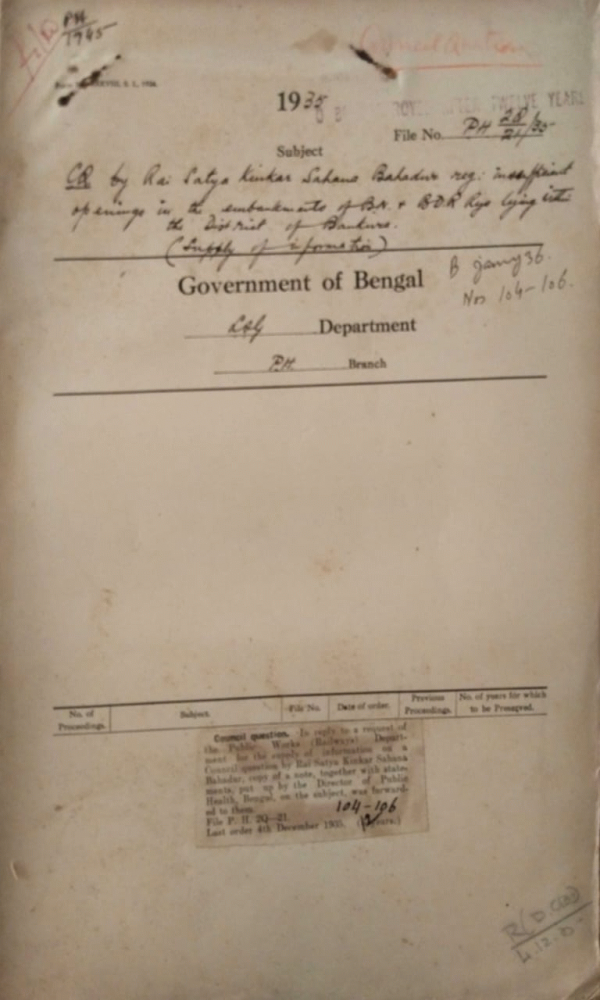 PH
1945
Council Question
1935
TWELVE YEARS
File No. PH 2Q/21/35
Subject
CQ by Rai Satya Kinkar Sahana Bahadur reg: insufficient
openings in the embankments of BN. & BDR Rys lying with
the District of Bankura.
(Supply of information)
Government of Bengal
B Jany 36.
Nos 104-106.
LSG Department
PH. Branch
No. of Proceedings. Subject. File No. Date of order. Previous Proceedings. No. of years for which to be Preserved.
Council question. In reply to a request of
the Public Works (Railways) Depart-
ment for the supply of information on a
Council question by Rai Satya Kinkar Sahana
Bahadur, copy of a note, together with state-
ments, put up by the Director of Public
Health, Bengal, on the subject, was forward-
ed to them.
104-106
File P. H. 2Q-21.
Last order 4th December 1935. (12 years.)